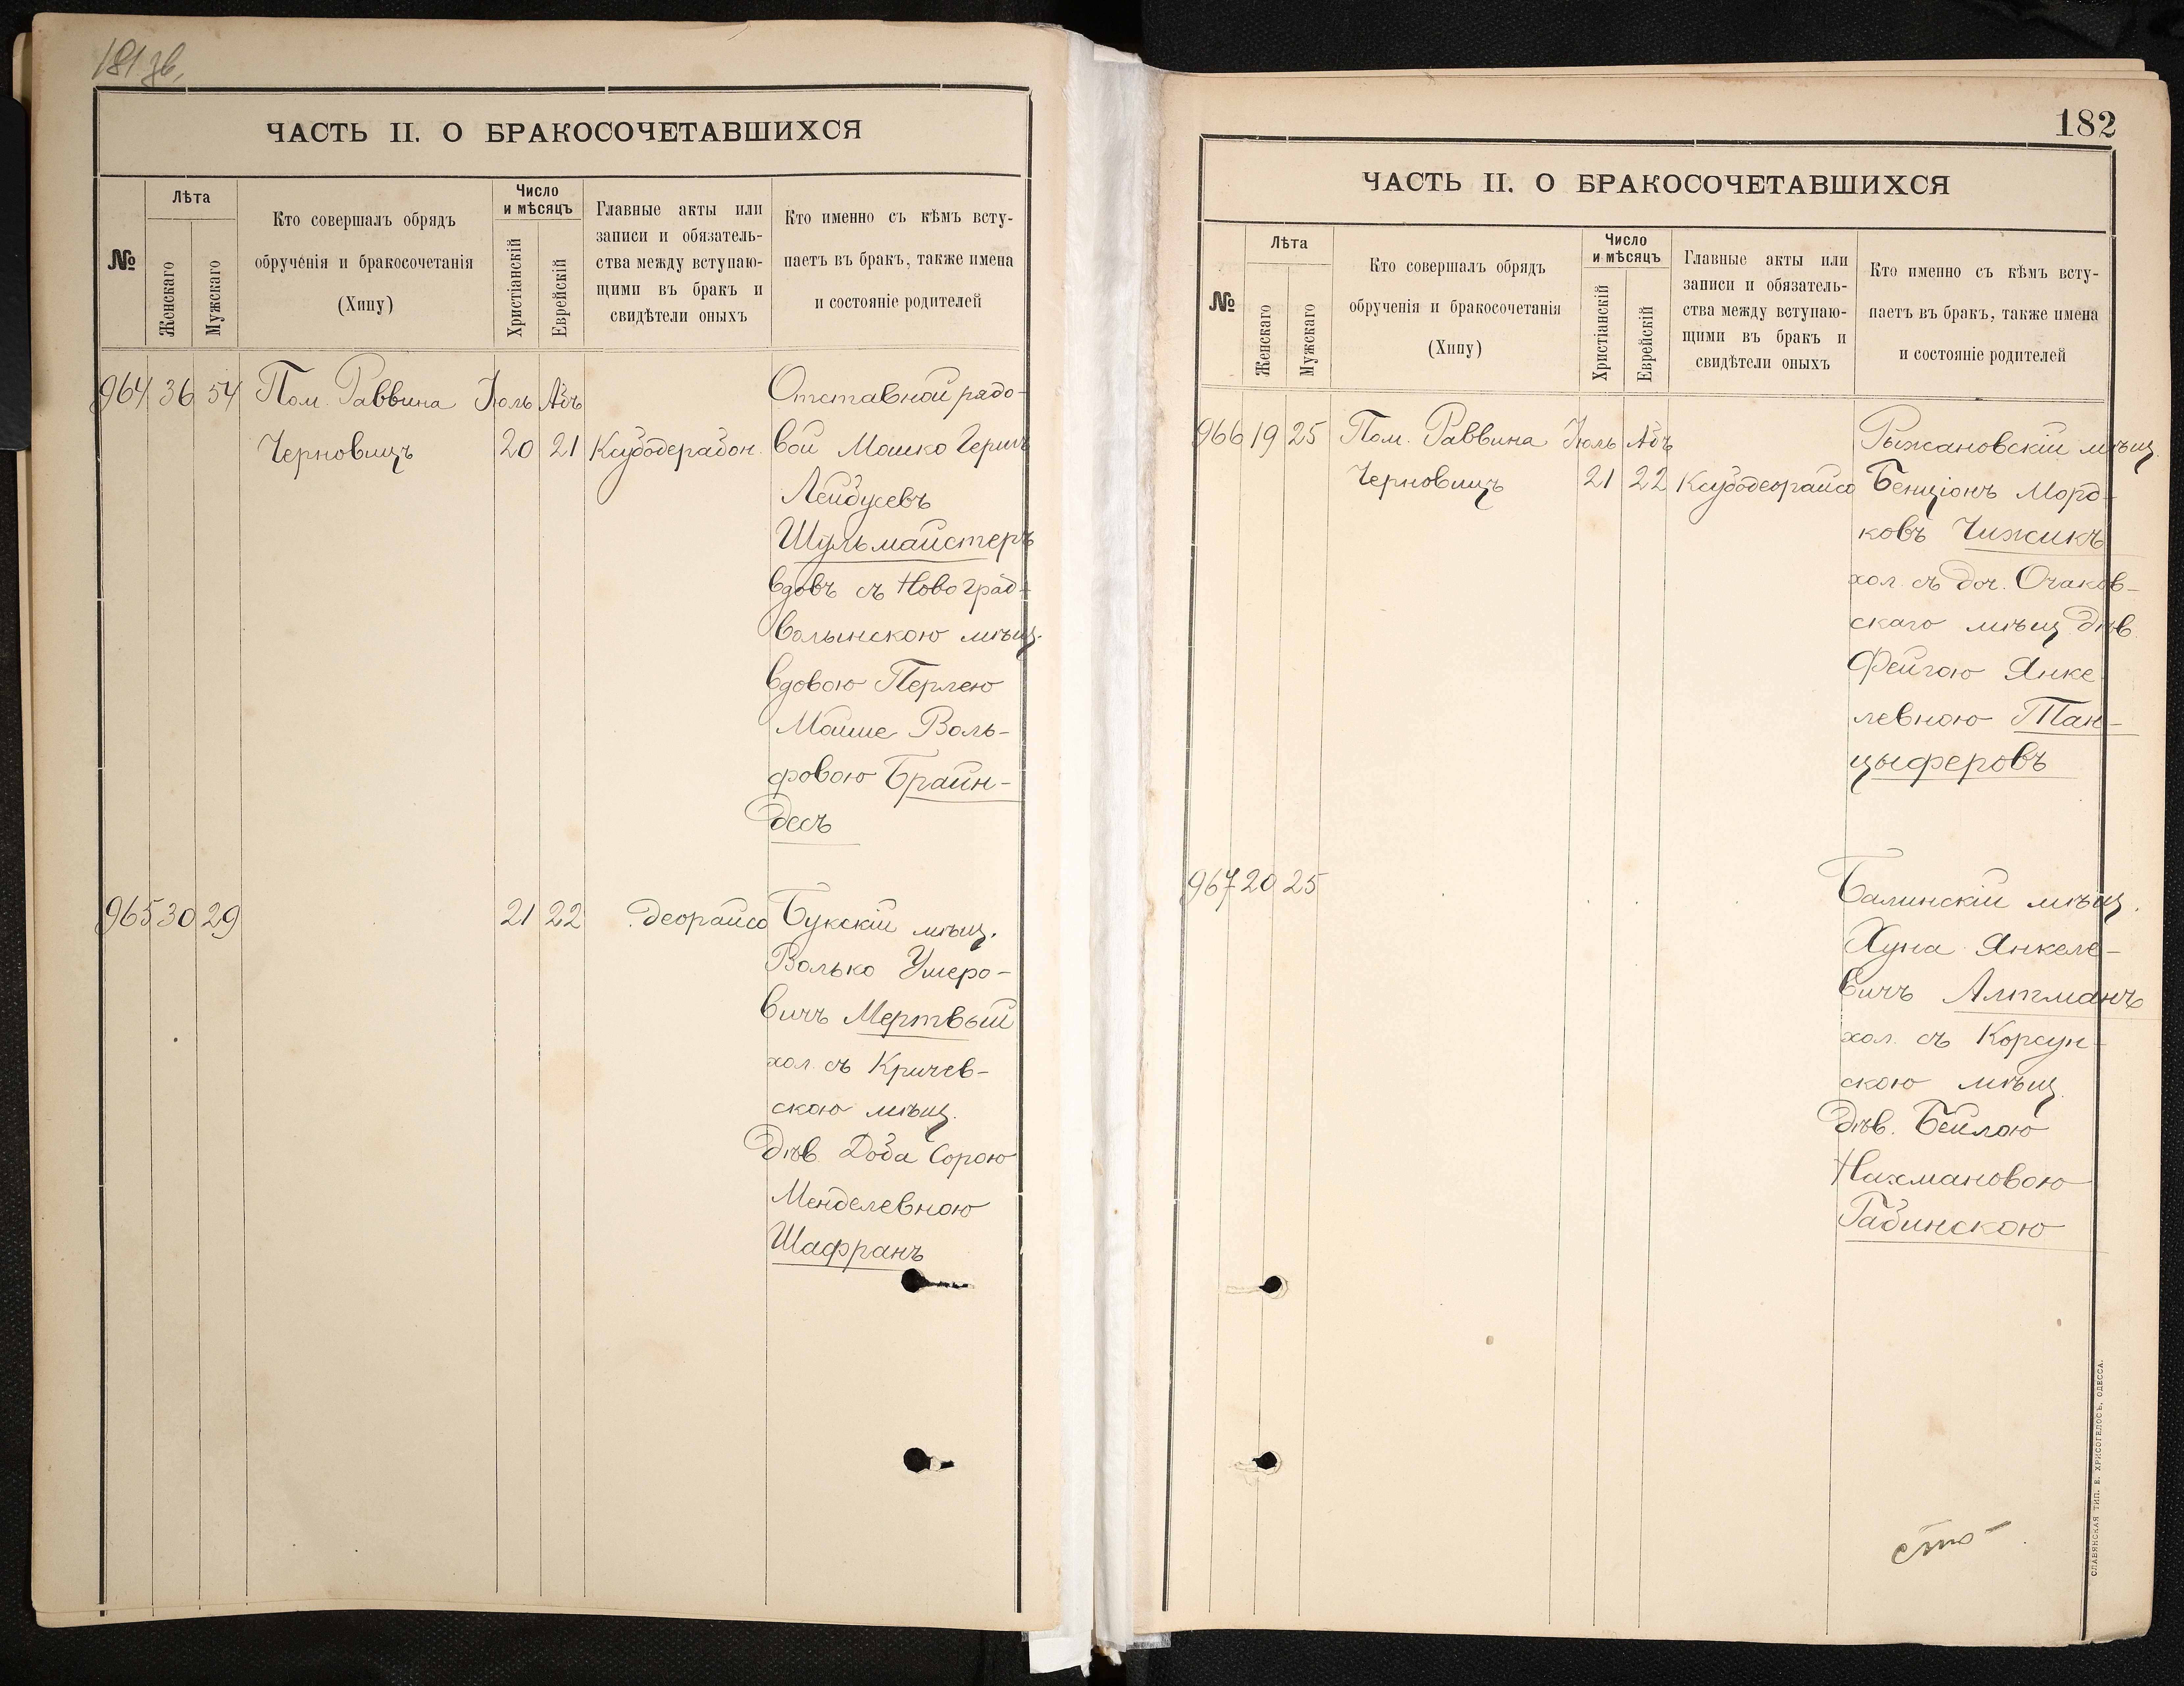 181 зв.
ЧАСТЬ II. О БРАКОСОЧЕТАВШИХСЯ
№
Лѣта
Женскаго
Мужскаго
Кто совершалъ обрядъ
обрученія и бракосочетанія
(Хипу)
Число
и мѣсяцъ
Христіанскій
Еврейскій
Главные акты или
записи и обязатель-
ства между вступаю-
щими въ бракъ и
свидѣтели оныхъ
Кто именно съ кѣмъ всту-
паетъ въ бракъ, также имена
и состояніе родителей
964 36 54 Пом. Раввина Іюль Абъ Отставной рядо-
Черновицъ 20 21 Ксубодерабон. вой Мошко Гершъ
Лейбусевъ
Шульмайстеръ
вдовъ съ Новоград-
волынскою мѣщ.
вдовою Перлею
Мойше Воль-
фовою Браин-
десъ
965 30 29 21 22 деорайсо Букскій мѣщ.
Волько Умеро-
вичъ Мертвый
хол. съ Кричев-
скою мѣщ.
дѣв. Доба Сорою
Менделевною
Шафранъ
182
ЧАСТЬ II. О БРАКОСОЧЕТАВШИХСЯ
№
Лѣта
Женскаго
Мужскаго
Кто совершалъ обрядъ
обрученія и бракосочетанія
(Хипу)
Число
и мѣсяцъ
Христіанскій
Еврейскій
Главные акты или
записи и обязатель-
ства между вступаю-
щими въ бракъ и
свидѣтели оныхъ
Кто именно съ кѣмъ всту-
паетъ въ бракъ, также имена
и состояніе родителей
966 19 25 Пом. Раввина Іюль Абъ Рыжановскій мѣщ.
Черновицъ 21 22 Ксубодеорайсо Бенціонъ Морд-
ковъ Чижикъ
хол. съ доч. Очаков-
скаго мѣщ. дѣв.
Фейгою Янке-
левною Тан-
цыферовъ
967 20 25 Балинскій мѣщ.
Хуна Янкеле-
вичъ Алтманъ
хол. съ Корсун-
скою мѣщ.
дѣв. Бейлою
Нахмановою
Рабинскою
сто
СЛАВЯНСКАЯ ТИП. Е. ХРИСОГЕЛОСЪ, ОДЕССА.